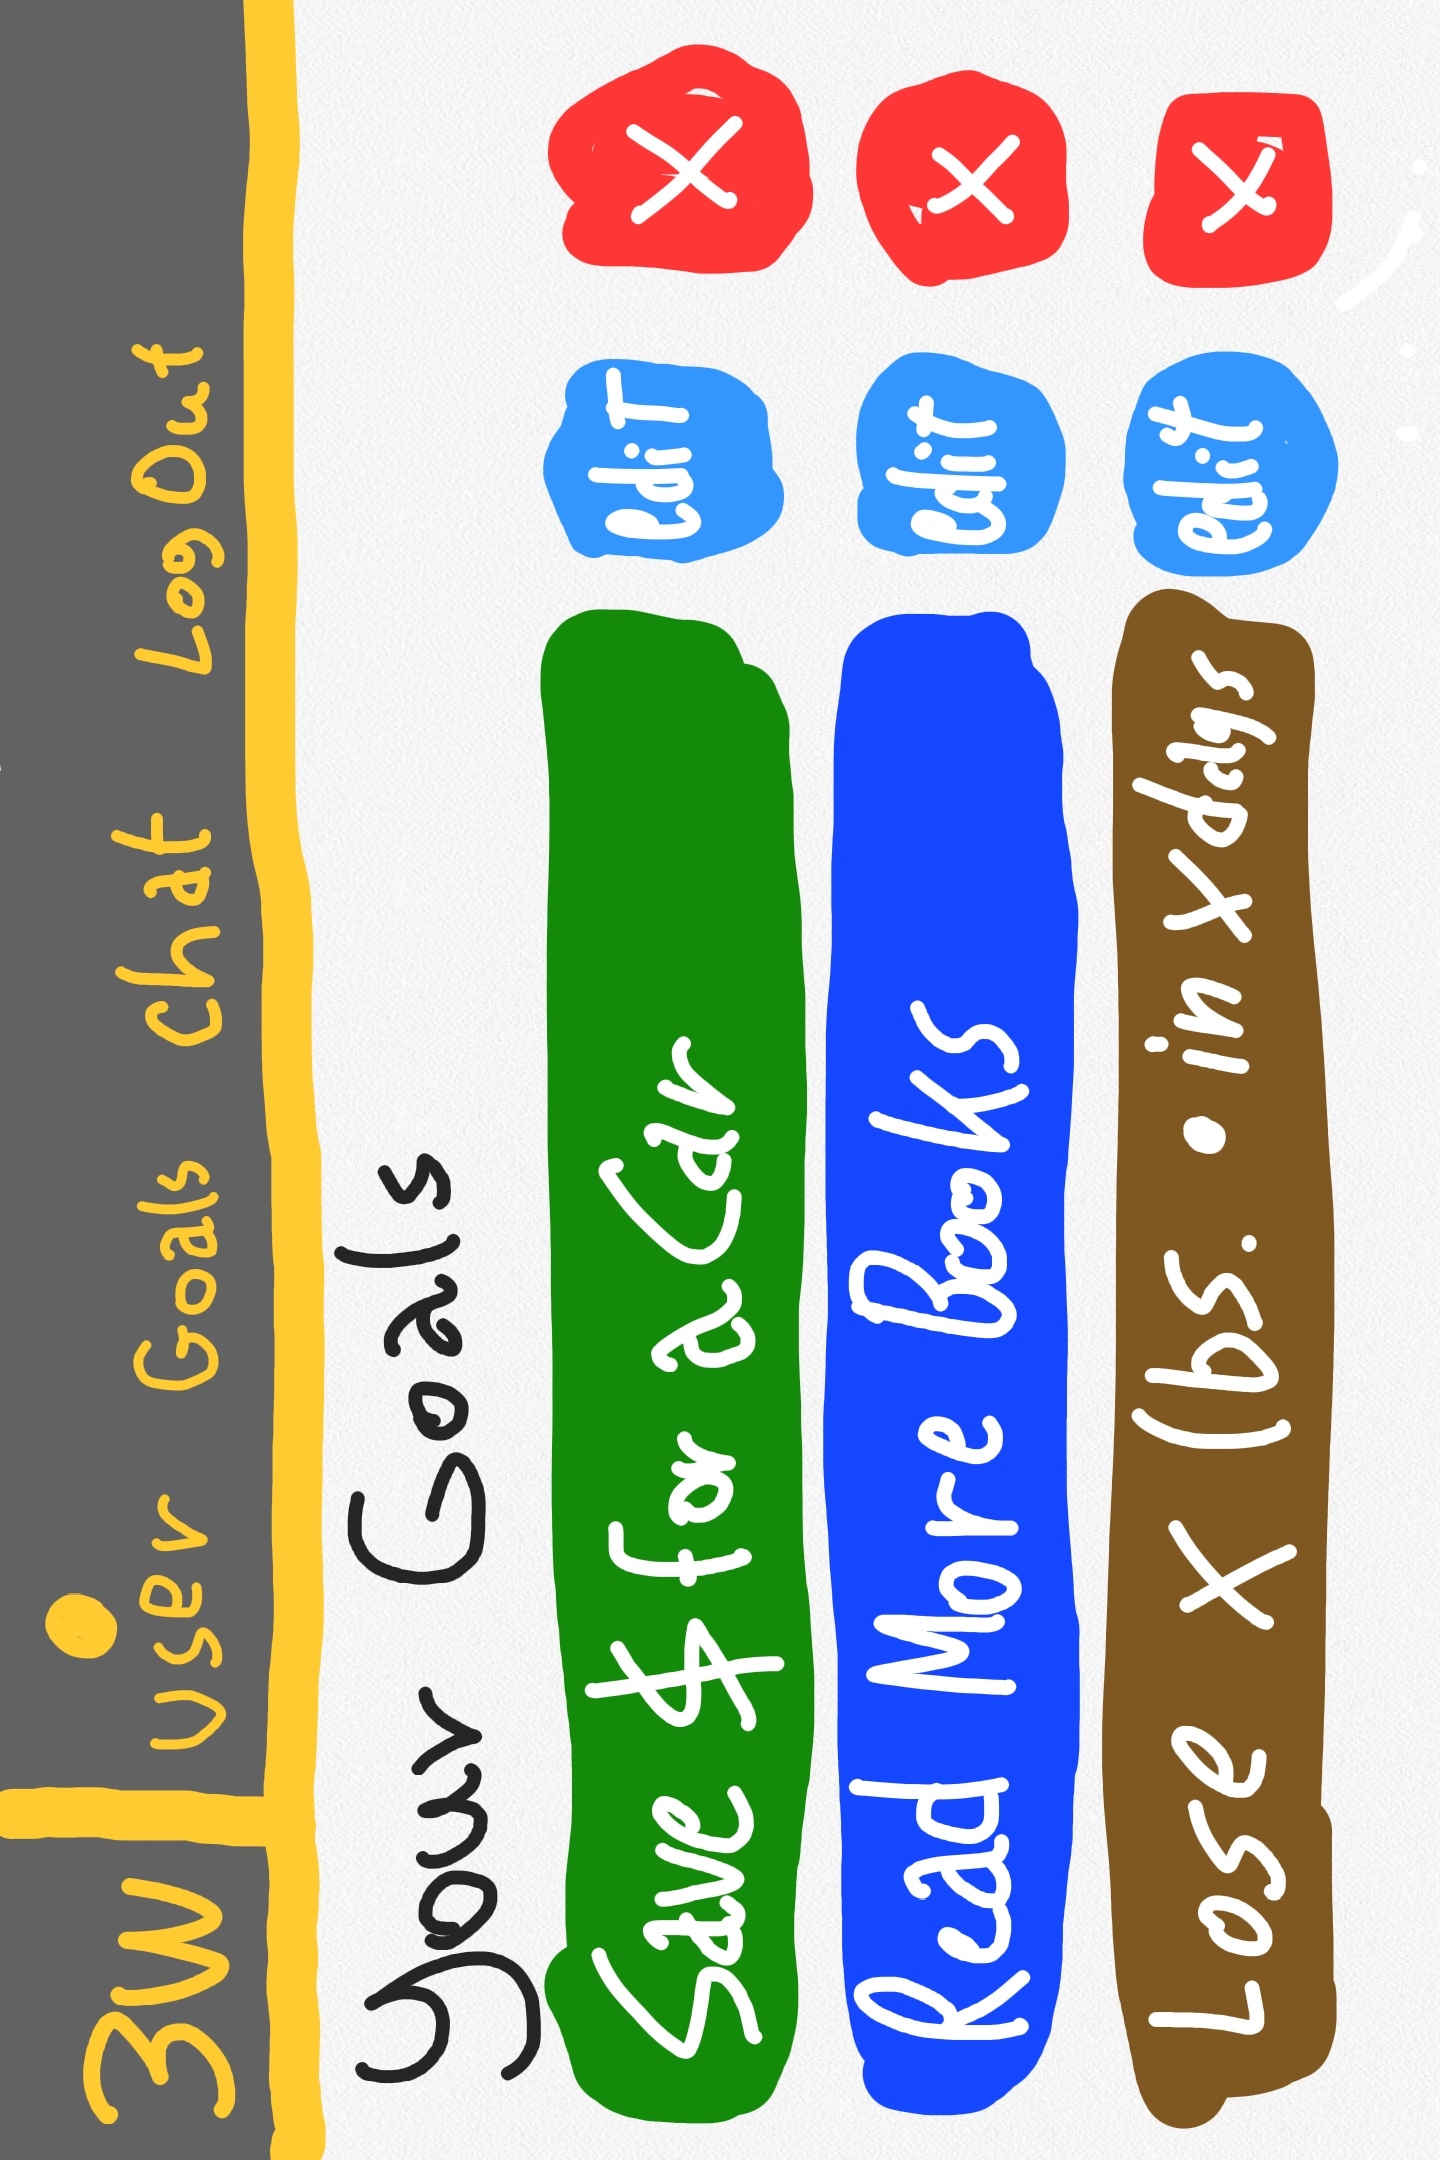 3W User Goals Chat LogOut
Your Goals
Save $ for a Car edit X
Read More Books edit X
Lose X lbs. • in X days edit X